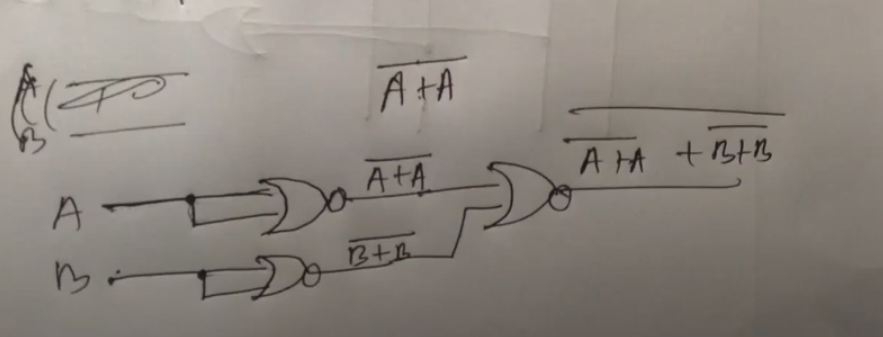 A
B
$\overline{A+A}$
$\overline{\overline{A+A} + \overline{B+B}}$
A
$\overline{A+A}$
B
$\overline{B+B}$